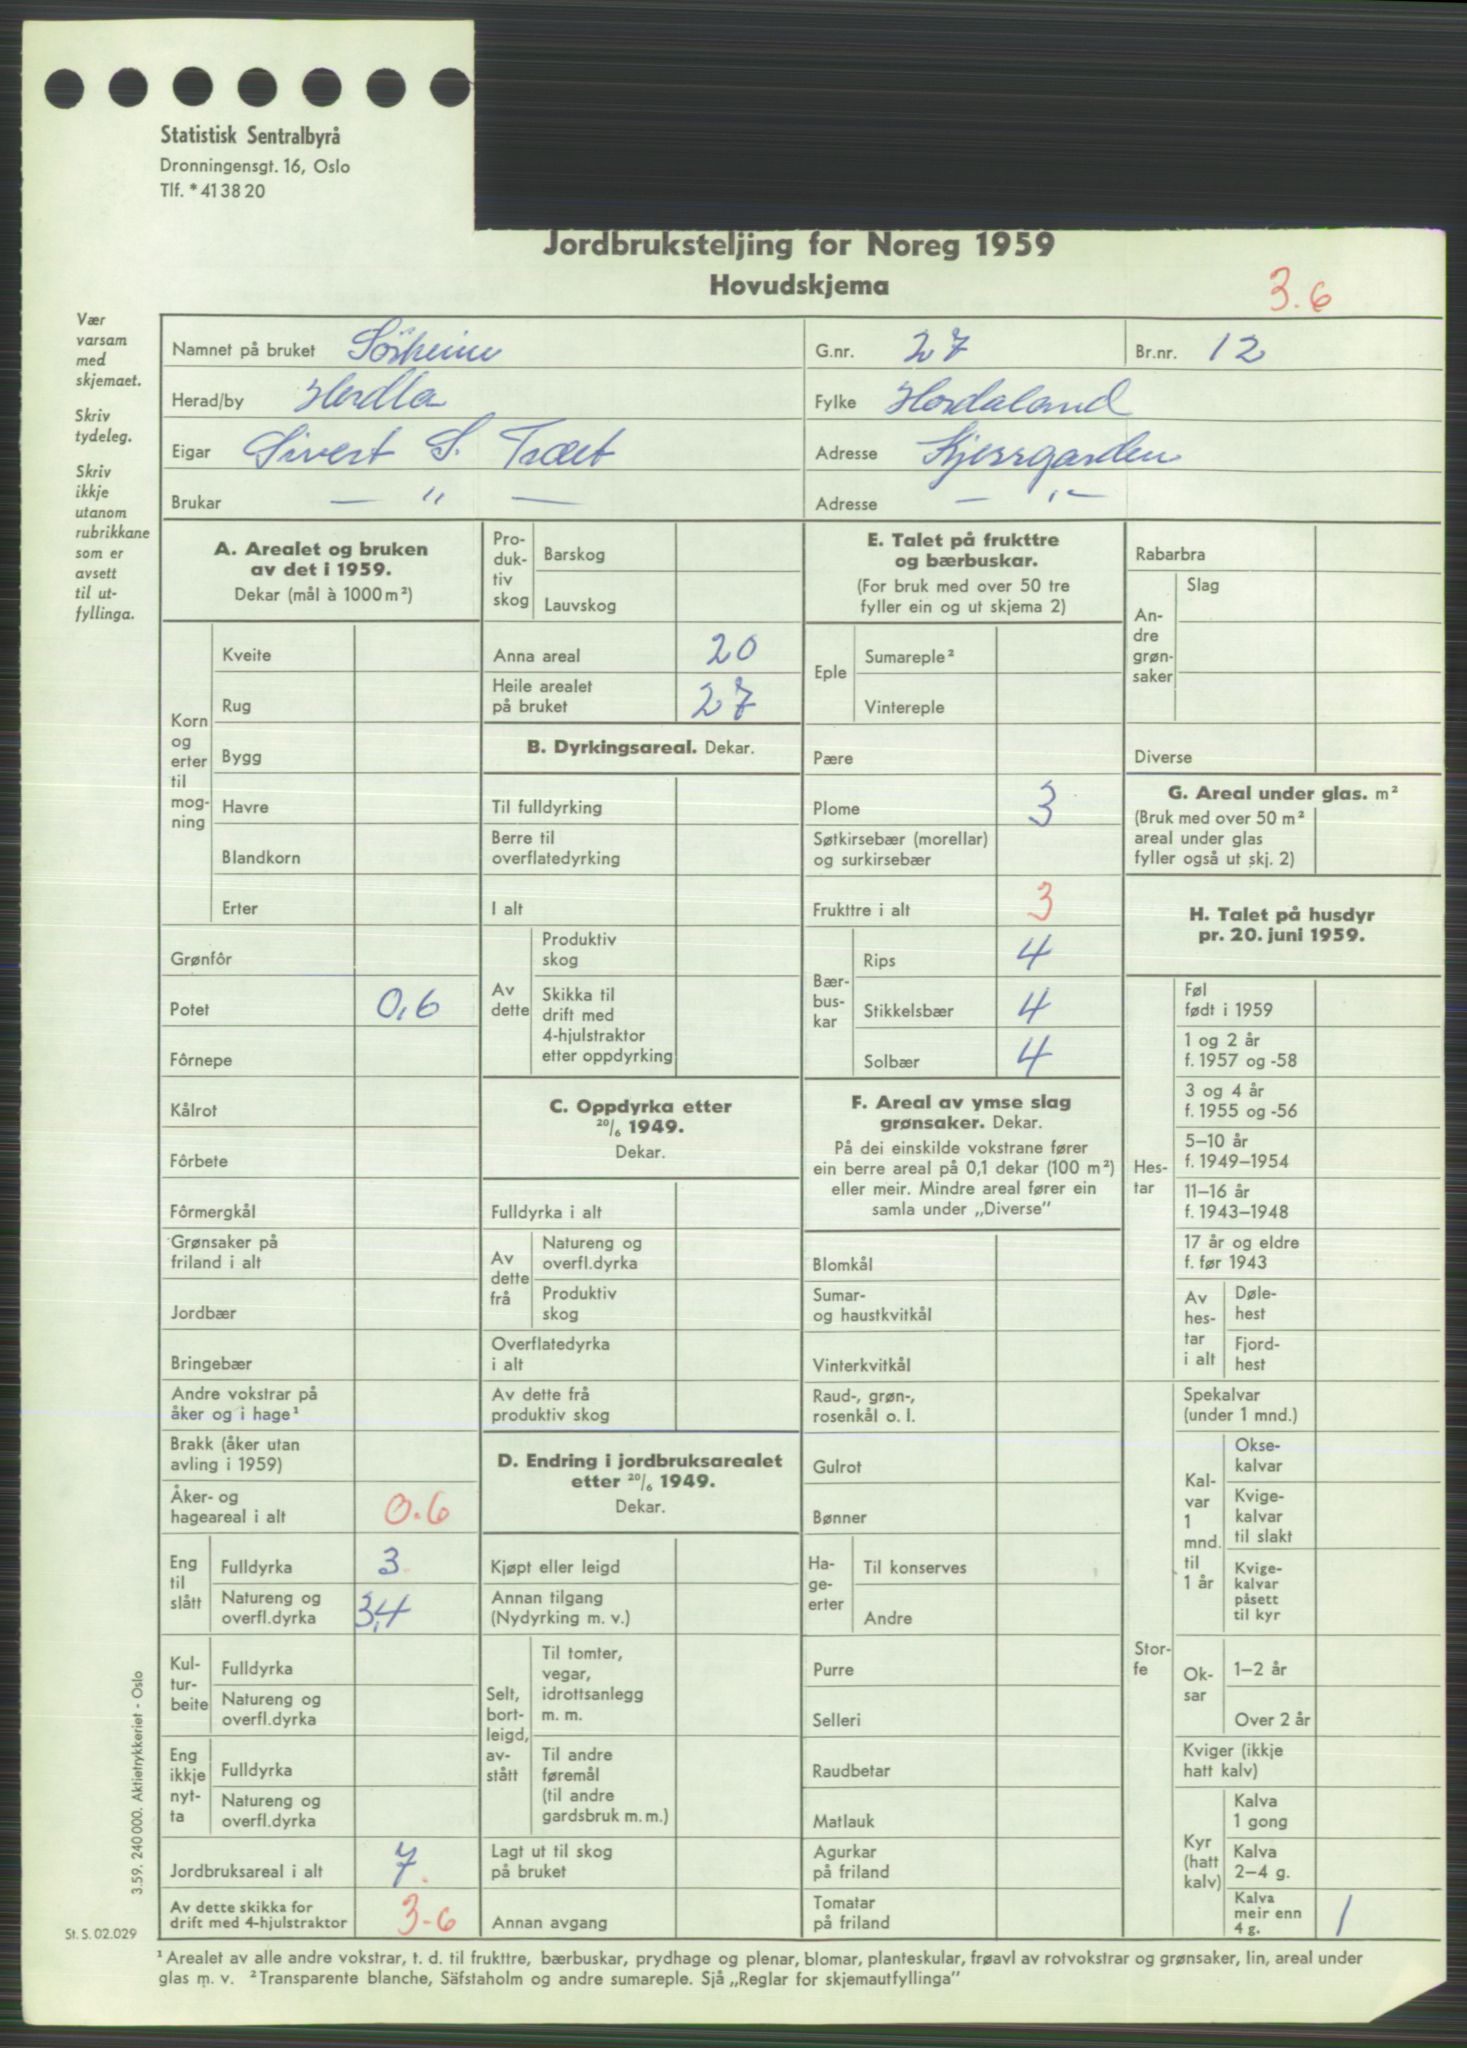 Statistisk Sentralbyrå
Dronningensgt. 16, Oslo
Tlf. *41 38 20
Jordbruksteljing for Noreg 1959
Hovudskjema
3.6
Vær
varsam
med
skjemaet.
Skriv
tydeleg.
Skriv
ikkje
utanom
rubrikkane
som er
avsett
til ut-
fyllinga.
Namnet på bruket Sörheim G.nr. 27 Br.nr. 12
Herad/by Herdla Fylke Hordaland
Eigar Sivert S. Træet Adresse Kjerrgarden
Brukar — " — Adresse — " —
A. Arealet og bruken
av det i 1959.
Dekar (mål à 1000 m²)
Korn
og
erter
til
mog-
ning
Kveite
Rug
Bygg
Havre
Blandkorn
Erter
Grønfôr
Potet 0,6
Fôrnepe
Kålrot
Fôrbete
Fôrmergkål
Grønsaker på
friland i alt
Jordbær
Bringebær
Andre vokstrar på
åker og i hage¹
Brakk (åker utan
avling i 1959)
Åker- og
hageareal i alt 0.6
Eng
til
slått
Fulldyrka 3
Natureng og
overfl.dyrka 3,4
Kul-
tur-
beite
Fulldyrka
Natureng og
overfl.dyrka
Eng
ikkje
nyt-
ta
Fulldyrka
Natureng og
overfl.dyrka
Jordbruksareal i alt 7.
Av dette skikka for
drift med 4-hjulstraktor 3.6
Pro-
duk-
tiv
skog
Barskog
Lauvskog
Anna areal 20
Heile arealet
på bruket 27
B. Dyrkingsareal. Dekar.
Til fulldyrking
Berre til
overflatedyrking
I alt
Av
dette
Produktiv
skog
Skikka til
drift med
4-hjulstraktor
etter oppdyrking
C. Oppdyrka etter
20/6 1949.
Dekar.
Fulldyrka i alt
Av
dette
frå
Natureng og
overfl.dyrka
Produktiv
skog
Overflatedyrka
i alt
Av dette frå
produktiv skog
D. Endring i jordbruksarealet
etter 20/6 1949.
Dekar.
Kjøpt eller leigd
Annan tilgang
(Nydyrking m. v.)
Selt,
bort-
leigd,
av-
stått
Til tomter,
vegar,
idrottsanlegg
m. m.
Til andre
føremål
(til andre
gardsbruk m. m.)
Lagt ut til skog
på bruket
Annan avgang
E. Talet på frukttre
og bærbuskar.
(For bruk med over 50 tre
fyller ein og ut skjema 2)
Eple
Sumareple²
Vintereple
Pære
Plome 3
Søtkirsebær (morellar)
og surkirsebær
Frukttre i alt 3
Bær-
bus-
kar
Rips 4
Stikkelsbær 4
Solbær 4
F. Areal av ymse slag
grønsaker. Dekar.
På dei einskilde vokstrane fører
ein berre areal på 0,1 dekar (100 m²)
eller meir. Mindre areal fører ein
samla under „Diverse”
Blomkål
Sumar-
og haustkvitkål
Vinterkvitkål
Raud-, grøn-,
rosenkål o. l.
Gulrot
Bønner
Ha-
ge-
erter
Til konserves
Andre
Purre
Selleri
Raudbetar
Matlauk
Agurkar
på friland
Tomatar
på friland
Rabarbra
An-
dre
grøn-
saker
Slag
Diverse
G. Areal under glas. m²
(Bruk med over 50 m²
areal under glas
fyller også ut skj. 2)
H. Talet på husdyr
pr. 20. juni 1959.
Hes-
tar
Føl
født i 1959
1 og 2 år
f. 1957 og -58
3 og 4 år
f. 1955 og -56
5–10 år
f. 1949–1954
11–16 år
f. 1943–1948
17 år og eldre
f. før 1943
Av
hes-
tar
i alt
Døle-
hest
Fjord-
hest
Stor-
fe
Spekalvar
(under 1 mnd.)
Kal-
var
1
mnd.
til
1 år
Okse-
kalvar
Kvige-
kalvar
til slakt
Kvige-
kalvar
påsett
til kyr
Ok-
sar
1–2 år
Over 2 år
Kviger (ikkje
hatt kalv)
Kyr
(hatt
kalv)
Kalva
1 gong
Kalva
2–4 g.
Kalva
meir enn
4 g. 1
3.59. 240 000. Aktietrykkeriet - Oslo
St. S. 02.029
¹ Arealet av alle andre vokstrar, t. d. til frukttre, bærbuskar, prydhage og plenar, blomar, planteskular, frøavl av rotvokstrar og grønsaker, lin, areal under
glas m. v. ² Transparente blanche, Säfstaholm og andre sumareple. Sjå „Reglar for skjemautfyllinga”